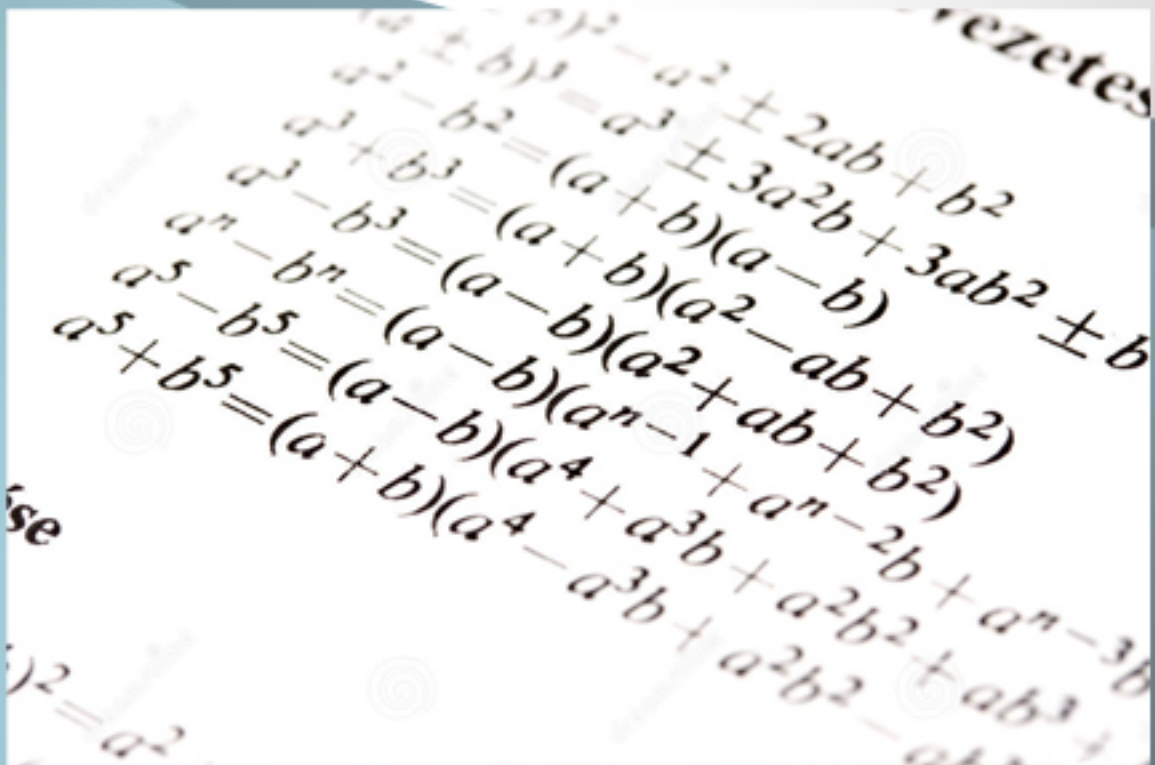 vezetes
)² = a² ± 2ab + b²
(a ± b)³ = a³ ± 3a²b + 3ab² ± b
a² − b² = (a + b)(a − b)
a³ + b³ = (a + b)(a² − ab + b²)
a³ − b³ = (a − b)(a² + ab + b²)
aⁿ − bⁿ = (a − b)(aⁿ⁻¹ + aⁿ⁻²b + aⁿ⁻³b
a⁵ − b⁵ = (a − b)(a⁴ + a³b + a²b² + ab³ +
a⁵ + b⁵ = (a + b)(a⁴ − a³b + a²b² − ab³
se
)² = a²